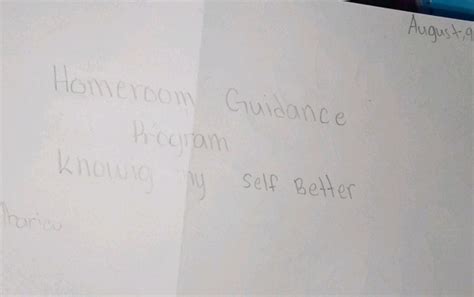 August, 9
Homeroom Guidance
Program
Knowig my self Better